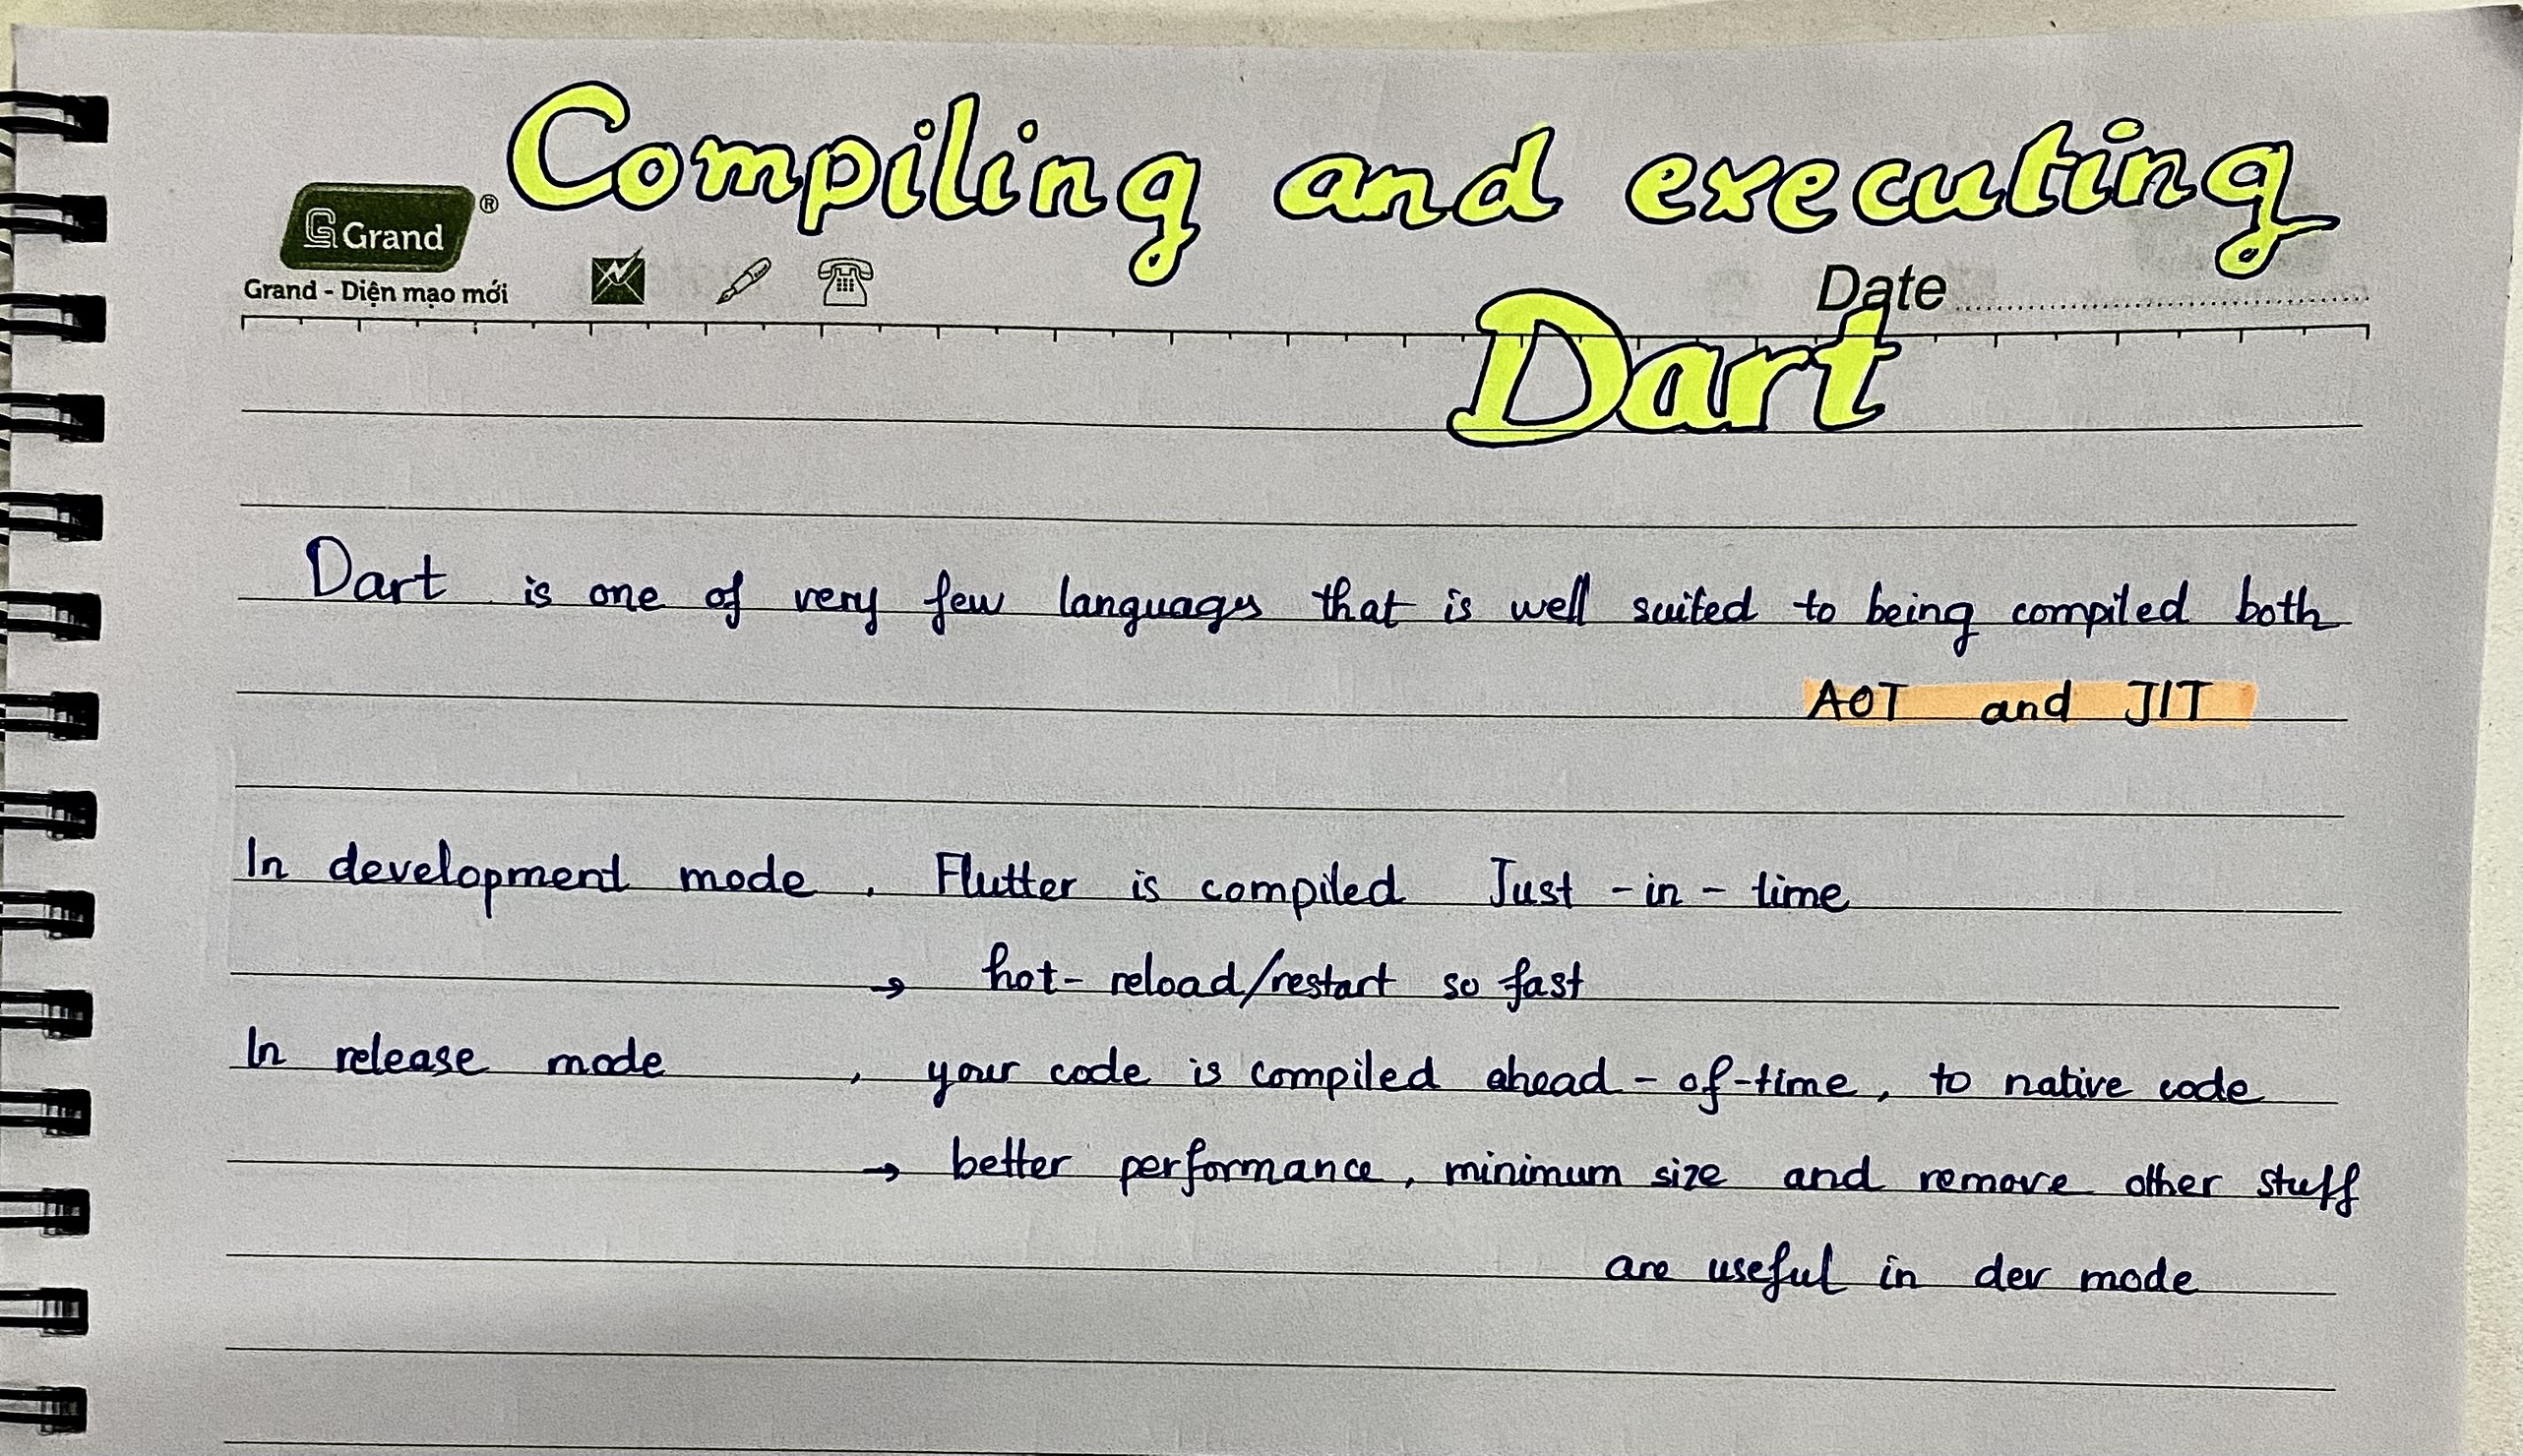 Compiling and executing
Dart
G Grand ®
Grand - Diện mạo mới
Date
Dart is one of very few languages that is well suited to being compiled both
AOT and JIT
In development mode, Flutter is compiled Just-in-time
→ hot-reload/restart so fast
In release mode, your code is compiled ahead-of-time, to native code
→ better performance, minimum size and remove other stuff
are useful in dev mode